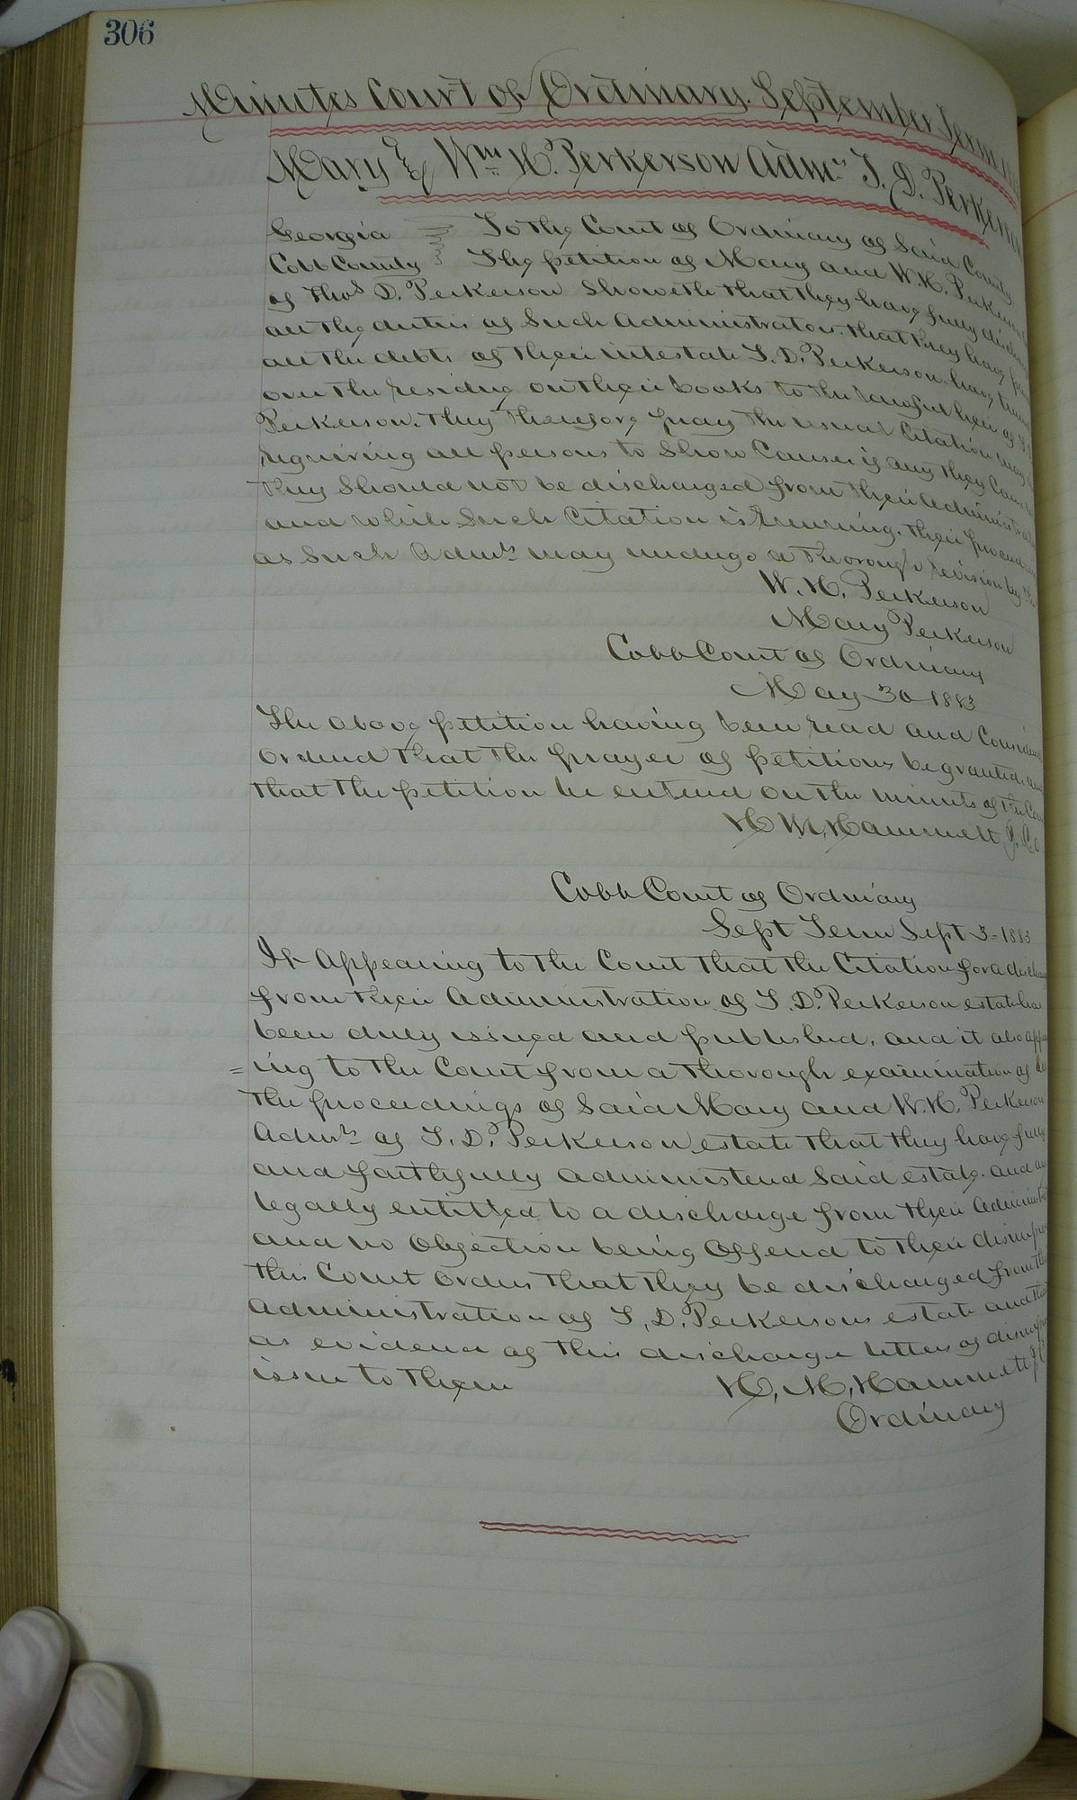 306
Minutes Court of Ordinary. September Term
Mary & Wm H. Perkerson Admrs T. D. Perkerson
Georgia To the Court of Ordinary of Said County
Cobb County The petition of Mary and W. H. Perkerson
of Thos D. Perkerson Showeth that they have fully
all the duties of Such Administrators. that they have
all the debts of their intestate T. D. Perkerson, have
over the residue on their books to the lawful heir of
Perkerson. They Therefore pray the usual Citation may
requiring all persons to Show Cause if any they Can
they Should not be discharged from their
and while Such Citation is running, their
as Such Admrs may undergo a Thorough revision by the
W. H. Perkerson
Mary Perkerson
Cobb Court of Ordinary
May 30 1883
The above petition having been read and
Ordered that the prayer of petitions be granted and
that the petition be entered on the minutes of the
H M, Hammett
Cobb Court of Ordinary
Sept Term Sept 3-1883
It Appearing to the Court that the Citation for a
from their Administration of T. D. Perkerson estate has
been duly issued and published, and it also
=ing to the Court from a thorough examination of
the proceedings of Said Mary and W. H. Perkerson
Admrs of T. D. Perkerson estate that they have fully
and faithfully administered Said estate. and
legally entitled to a discharge from their
and no Objection being Offered to their
this Court orders that they be discharged from
administration of T, D. Perkersons estate and
as evidence of this discharge letters of
issue to them H, M, Hammett
Ordinary